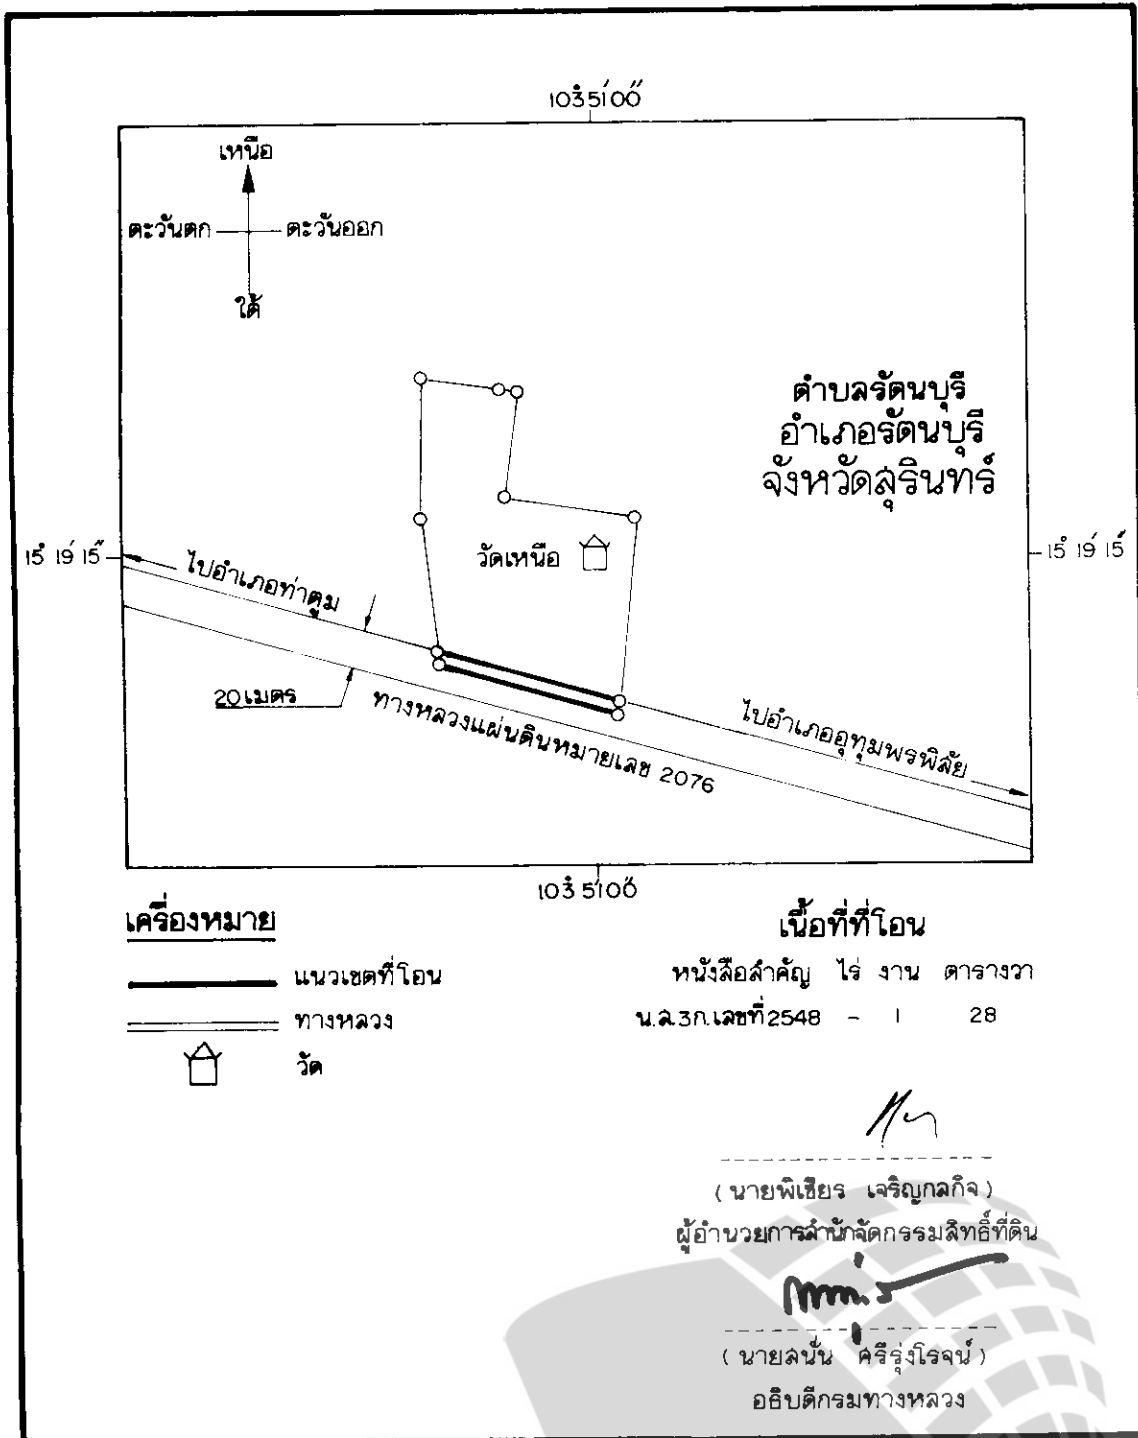 103° 51' 00"
เหนือ
ตะวันตก ตะวันออก
ใต้
ตำบลรัตนบุรี
อำเภอรัตนบุรี
จังหวัดสุรินทร์
15° 19' 15" 15° 19' 15"
วัดเหนือ
ไปอำเภอท่าตูม
20 เมตร
ทางหลวงแผ่นดินหมายเลข 2076
ไปอำเภออุทุมพรพิสัย
103° 51' 00"
เครื่องหมาย
แนวเขตที่โอน
ทางหลวง
วัด
เนื้อที่ที่โอน
หนังสือสำคัญ ไร่ งาน ตารางวา
น.ส.3ก.เลขที่2548 - 1 28
(นายพิเชียร เจริญกลกิจ)
ผู้อำนวยการสำนักจัดกรรมสิทธิ์ที่ดิน
(นายสนั่น ศรีรุ่งโรจน์)
อธิบดีกรมทางหลวง